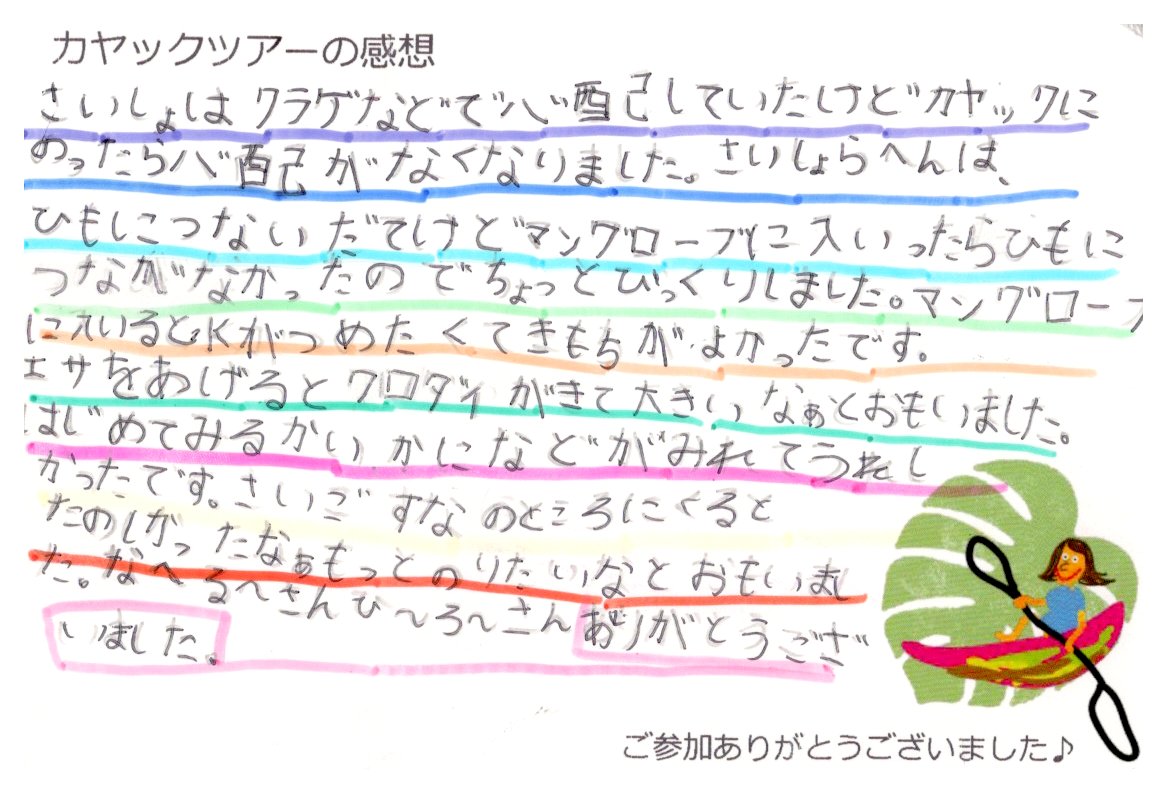 カヤックツアーの感想
さいしょはクラゲなどで心配していたけどカヤックに
のったら心配がなくなりました。さいしょらへんは、
ひもにつないだてけどマングローブに入いったらひもに
つなががなかったのでちょっとびっくりしました。マングローブ
に入いると水がつめたくてきもちがよかったです。
エサをあげるとクロダイがきて大きいなぁとおもいました。
はじめてみるかいかになどがみれてうれし
かったです。さいごすなのところにくると
たのしかったなぁもっとのりたいなとおもいまし
た。なへる〜さんひ〜ろ〜さんありがとうござ
いました。
ご参加ありがとうございました♪